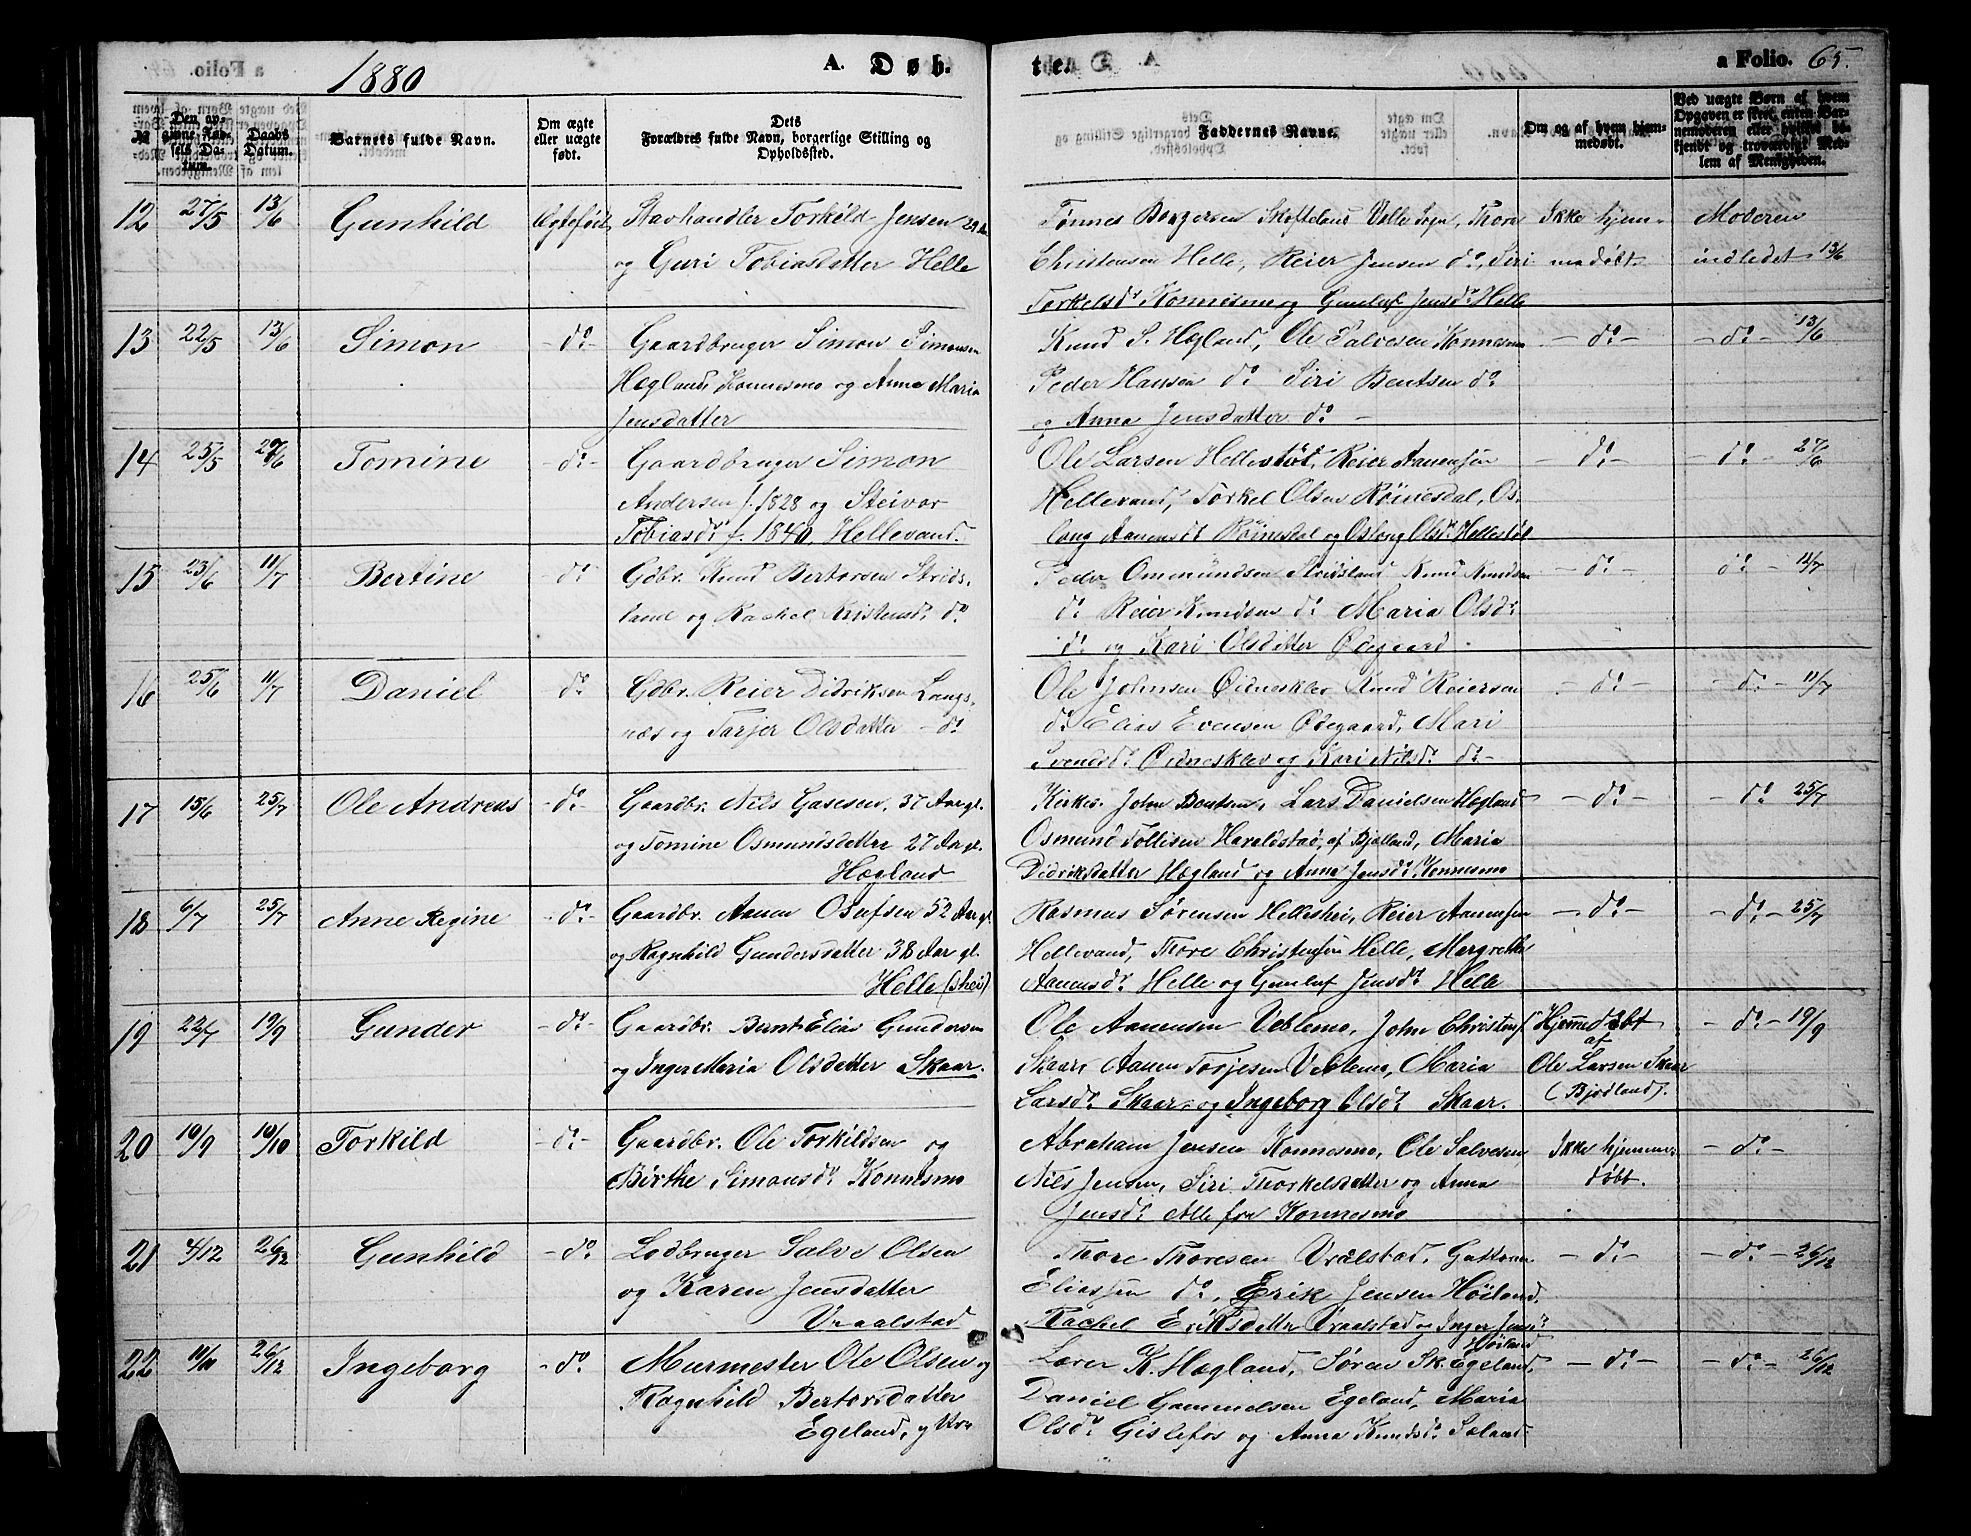 1880
A. Døb-
te.
a Folio. 65.
№
Den opgivne Fødsels Datum.
Daabs Datum.
Barnets fulde Navn.
Om ægte eller uægte født.
Dets Forældres fulde Navn, borgerlige Stilling og Opholdssted.
Faddernes Navne.
Om og af hvem hjemmedøbt.
Ved uægte Børn af hvem Opgaven er skeet, enten Barnemoderen eller hvilket bekjendt og troværdigt Medlem af Menigheden.
12 27/5 13/6 Gunhild Ægtefødt Stavhandler Torkild Jensen 29
og Guri Tobiasdatter Helle
Tønnes Borgersen Skofteland Valle Sogn, Thore
Christensen Helle, Reier Jensen do, Siri
Torkelsdr Konnesmo og Gunluf Jensdr Helle
Ikke hjem-
medøbt
Moderen
indledet 13/6
13 22/5 13/6 Simon - do - Gaardbruger Simon Simonsen
Hægland, Konnesmo og Anna Maria
Jensdatter
Knud S. Hægland, Ole Salvesen Konnesmo
Peder Hansen do Siri Bentsen do
og Anna Jensdatter do -
- do - - do - 13/6
14 25/5 27/6 Tomine - do - Gaardbruger Simon
Andersen f. 1828 og Steivor
Tobiasdr f. 1840, Hellevand.
Ole Larsen Hellestøt, Reier Aanensen
Hellevand, Torkel Olsen Röinesdal, Os-
long Aanensdr Röinesdal og Oslong Olsdr Hellestøl
- do - - do - 27/6
15 23/6 11/7 Bertine - do Gdbr. Knud Bertorsen Strids-
land og Rachel Kristensdr do
Peder Ommundsen Stridsland Knud Knudsen
do Reier Knudsen do Maria Olsdr
do og Kari Olsdatter Ødegaard -
- do - do - 11/7
16 25/6 11/7 Daniel do Gdbr. Reier Didriksen Langs-
næs og Tarjer Olsdatter - do
Ole Johnsen Øidnesklev Knud Reiersen
do Elias Evensen Ødegaard, Mari
Svendsdr Øidnesklev og Kari Nilsdr do -
- do - - do - 11/7
17 15/6 25/7 Ole Andreas - do - Gaardbr. Nils Gasesen, 37 Aar gl.
og Tomine Osmundsdatter 27 Aar gl.
Hægland
Kirkes. John Bentsen, Lars Danielsen Hægland
Osmund Tollisen Haraldstad, af Bjelland, Maria
Didriksdatter Hægland og Anna Jensdr Konnesmo
- do - - do - 25/7
18 6/7 25/7 Anne Regine - do - Gaardbr. Aanen Osufsen 52 Aar gl.
og Ragnhild Gundersdatter 38 Aar gl.
Helle (shei)
Rasmus Sørensen Helleshei, Reier Aanensen
Hellevand, Thore Christensen Helle, Margrethe
Aanensdr Helle og Gunluf Jensdr Helle
- do - - do - 25/7
19 22/7 19/9 Gunder - do - Gaardbr. Bernt Elias Gundersen
og Inger Maria Olsdatter Skaar.
Ole Aanensen Veblemo, John Christensen
Skaar, Aanen Torjesen Veblemo, Maria
Larsdr Skaar og Ingeborg Olsdr Skaar.
Hjemmedøbt
af
Ole Larsen Skaar
(Bjelland).
- do - 19/9
20 10/9 10/10 Torkild - do - Gaardbr. Ole Torkildsen og
Birthe Simonsdr Konnesmo
Abraham Jensen Konnesmo, Ole Salvesen,
Nils Jensen, Siri Thorkelsdatter og Anna
Jensdr Alle fra Konnesmo
Ikke hjemme-
døbt.
- do -
21 4/12 26/12 Gunhild - do - Lodbruger Salve Olsen
og Karen Jensdatter
Vraalstad
Thore Thoresen Vraalstad, Guttorm
Eliassen do, Erik Jensen Höiland,
Rachel Eriksdatter Vraalstad og Inger Jensdr
Höiland
- do - - do - 26/12
22 11/11 26/12 Ingeborg - do Murmester Ole Olsen og
Ragnhild Bertorsdatter
Egeland,
Lærer K. Hægland, Søren Sk. Egeland,
Daniel Gammelsen Egeland, Maria
Olsdr Gislefos og Anna Knudsdr Sæland
- do - - do - 26/12